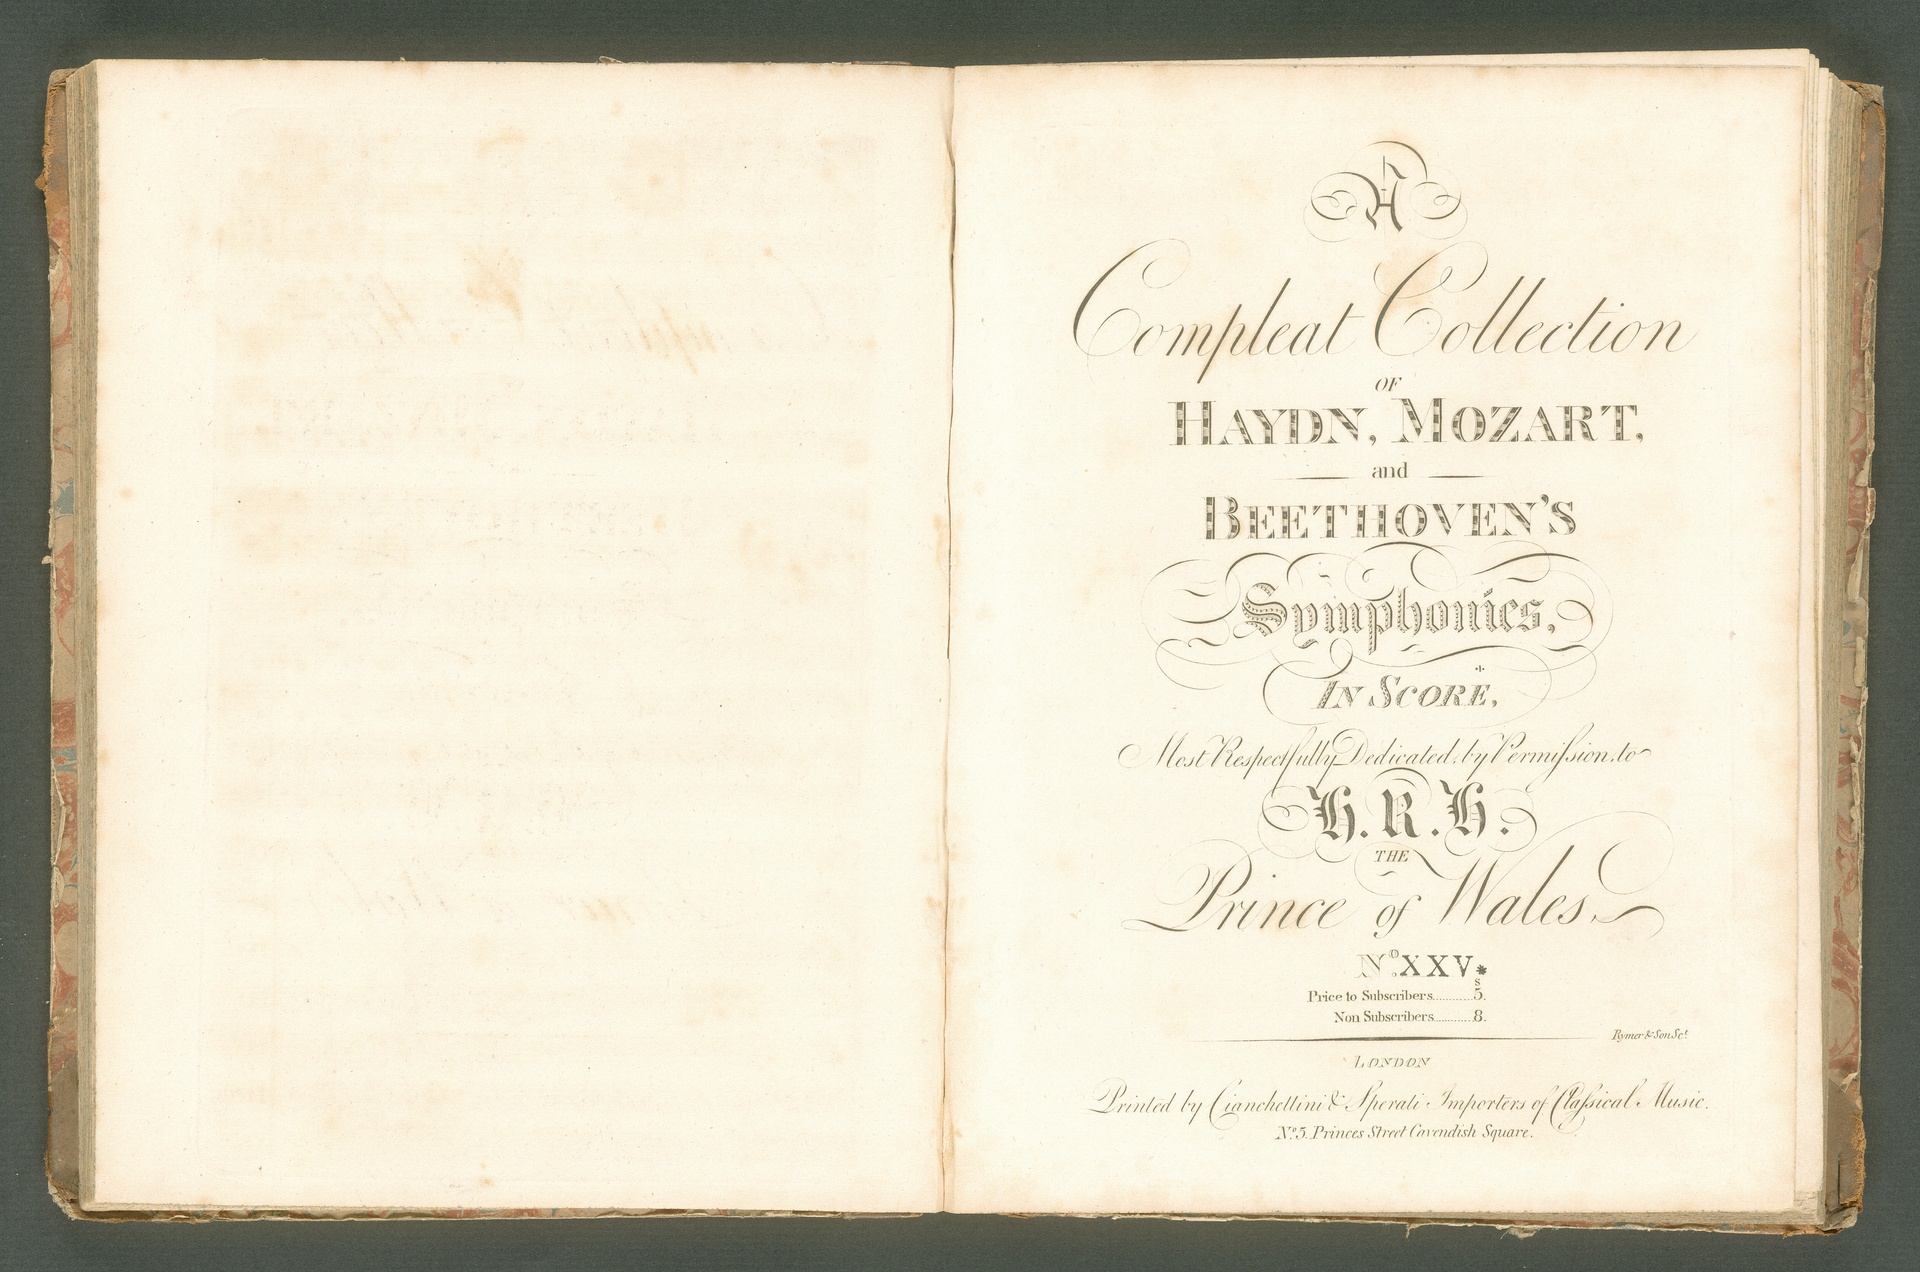 A
Compleat Collection
OF
HAYDN, MOZART,
and
BEETHOVEN'S
Symphonies,
IN SCORE,
Most Respectfully Dedicated, by Permission, to
H. R. H.
THE
Prince of Wales.
No. XXV*
s
Price to Subscribers...........5.
Non Subscribers...........8.
Rymer & Son Sct.
LONDON
Printed by Cianchettini & Sperati Importers of Classical Music.
No. 5. Princes Street Cavendish Square.